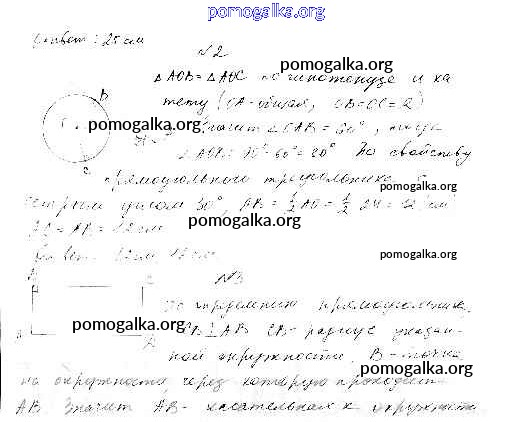 pomogalka.org
Ответ: 25 см
№2
△AOB = △AOC по гипотенузе и ка-
pomogalka.org
тету (OA - общая, OB = OC = R)
B
pomogalka.org
значит ∠OAB = 60°, тогда
C
∠AOB = 90° - 60° = 30° По свойству
прямоугольного треугольника с
pomogalka.org
острым углом 30°, AB = 1/2 AO = 1/2 · 24 = 12 (см)
pomogalka.org
AC = AB = 12 см
Ответ: 12 см 12 см
pomogalka.org
№3
По определению прямоугольника
pomogalka.org
CB ⊥ AB CB - радиус указан-
ной окружности. B - точка
pomogalka.org
на окружности через которую проходит
AB. Значит AB - касательная к окружности